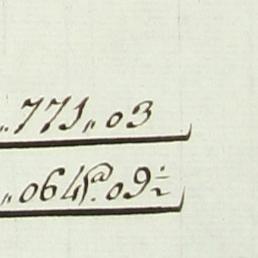 „771„03
„064$.09½